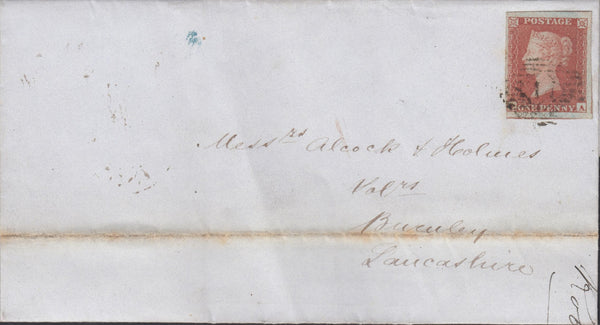 POSTAGE
ONE PENNY
A
Messrs Alcock & Holmes
Solrs
Burnley
Lancashire